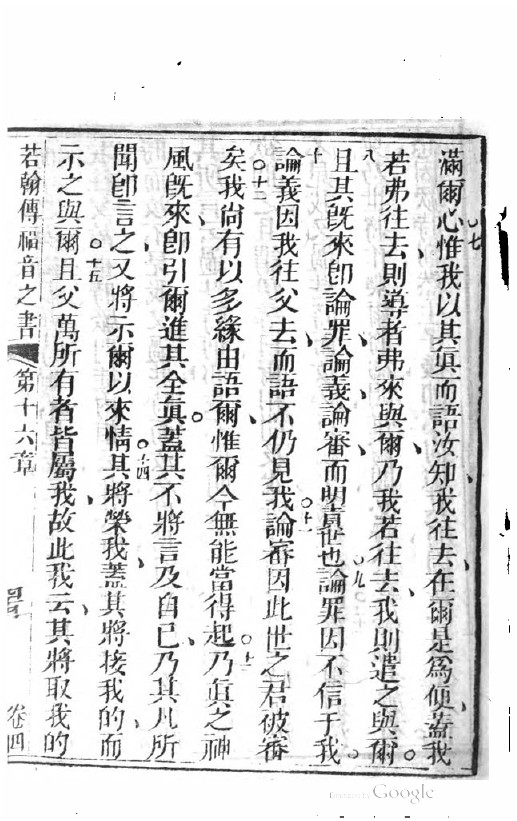 滿爾心。七惟我以其眞而語汝知我往去在爾是爲便蓋我
若弗往去則導者弗來與爾乃我若往去我則遣之與爾。
八且其旣來卽論罪論義論審而明責世也。九論罪因不信于我。
十論義因我往父去而語不仍見我。十一論審因此世之君彼審
矣。十二我尙有以多緣由語爾惟爾今無能當得起。十三乃眞之神
風旣來卽引爾進其全眞蓋其不將言及自己乃其凡所
聞卽言之又將示爾以來情。十四其將榮我蓋其將接我的而
示之與爾。十五且父萬所有者皆屬我故此我云其將取我的
若翰傳福音之書 第十六章 卷四
Digitized by Google